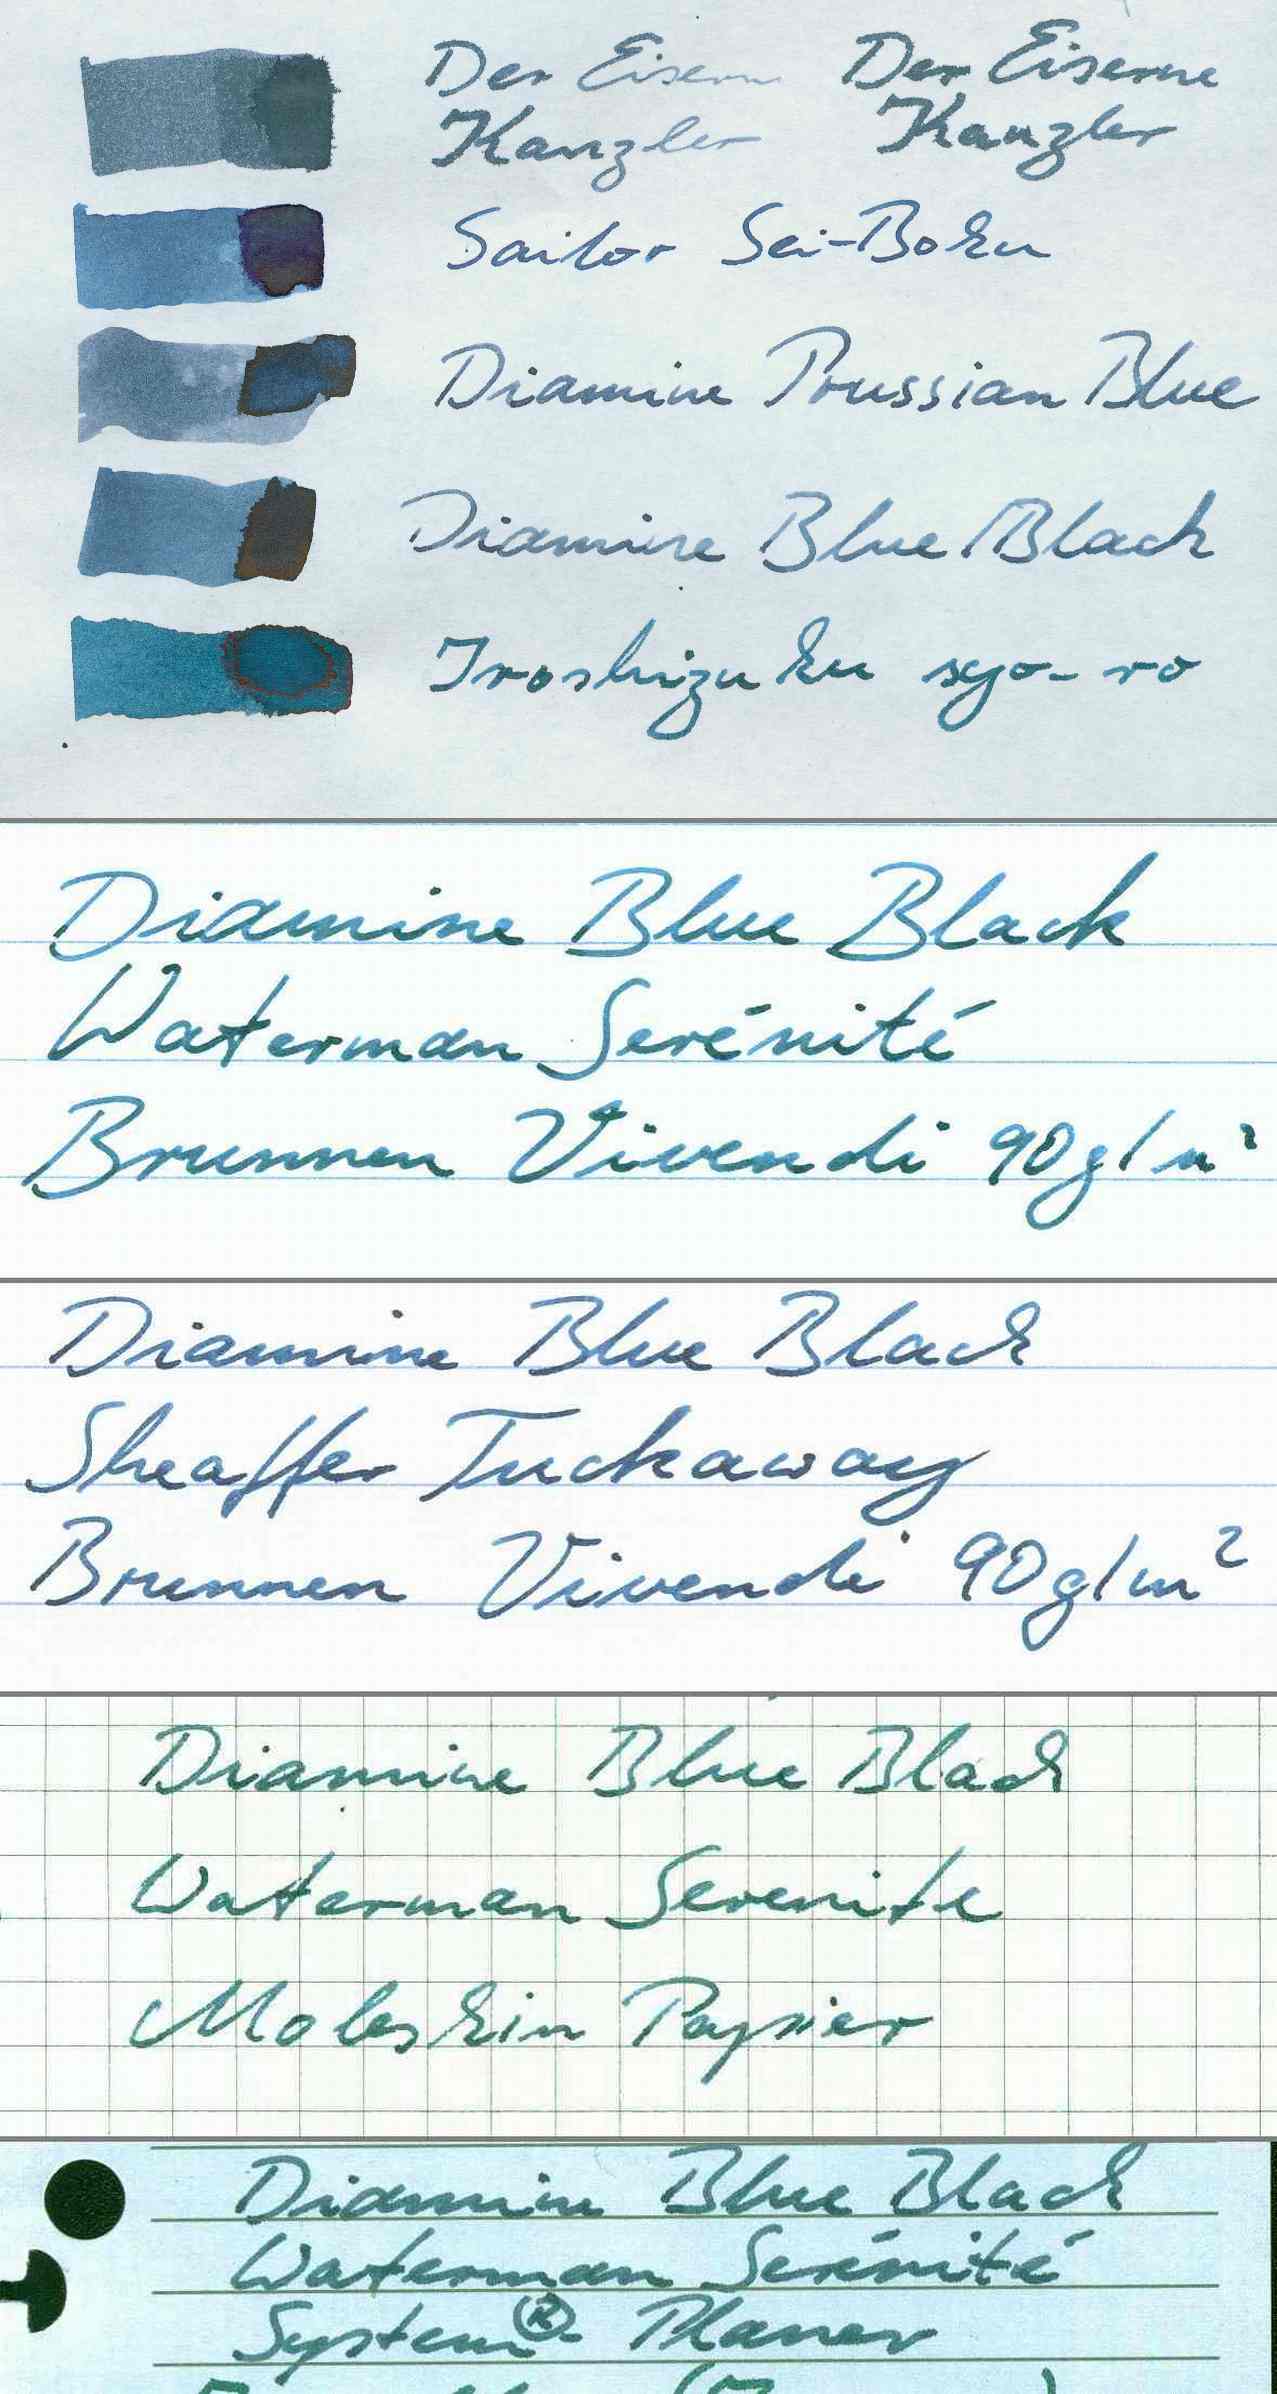 Der Eiserne Der Eiserne
Kanzler Kanzler
Sailor Sei-Boku
Diamine Prussian Blue
Diamine Blue/Black
Iroshizuku syo-ro
Diamine Blue Black
Waterman Sérénité
Brunnen Vivendi 90g/m²
Diamine Blue Black
Sheaffer Tuckaway
Brunnen Vivendi 90g/m²
Diamine Blue Black
Waterman Serenite
Moleskin Papier
Diamine Blue Black
Waterman Sérénité
System®- Planer